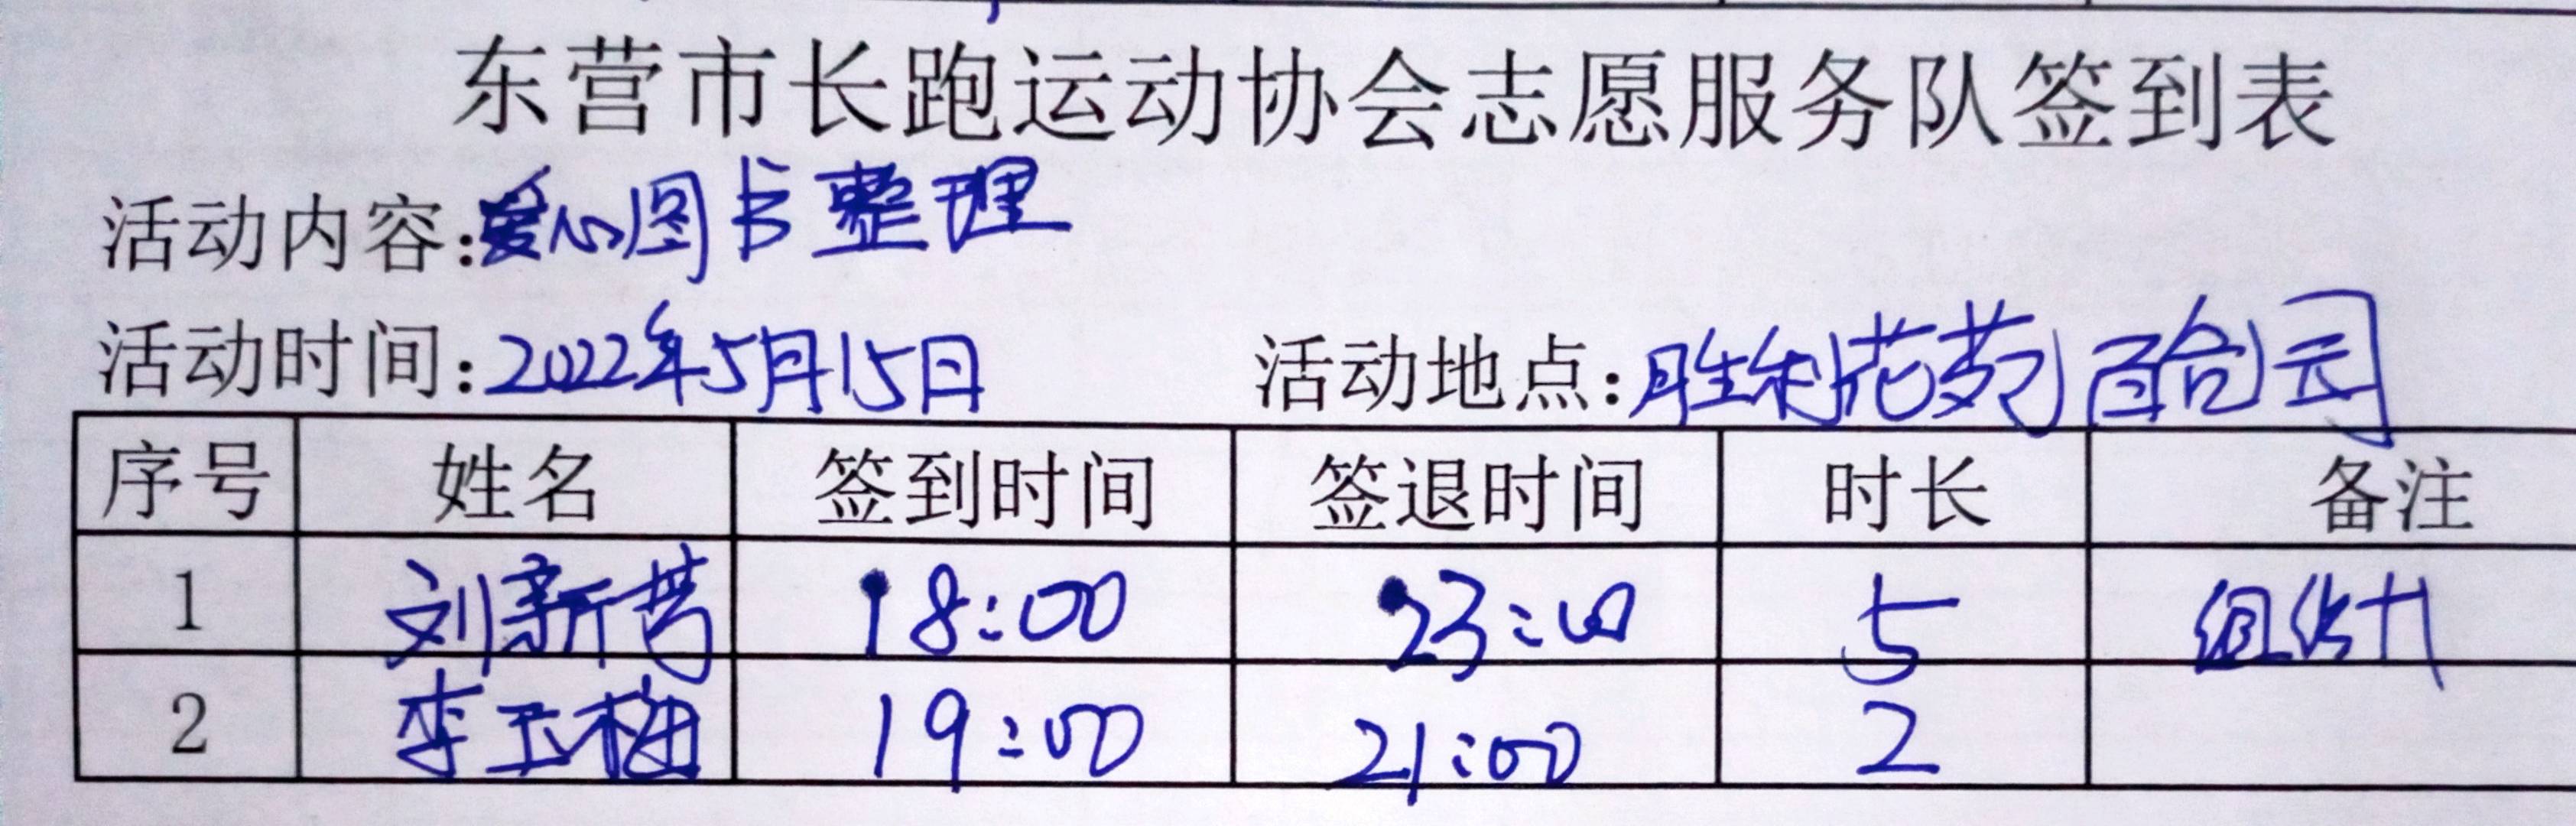 东营市长跑运动协会志愿服务队签到表
活动内容:爱心图书整理
活动时间:2022年5月15日 活动地点:胜利花苑百合园
序号 姓名 签到时间 签退时间 时长 备注
1 刘新 18:00 23:00 5
2 李玉梅 19:00 21:00 2